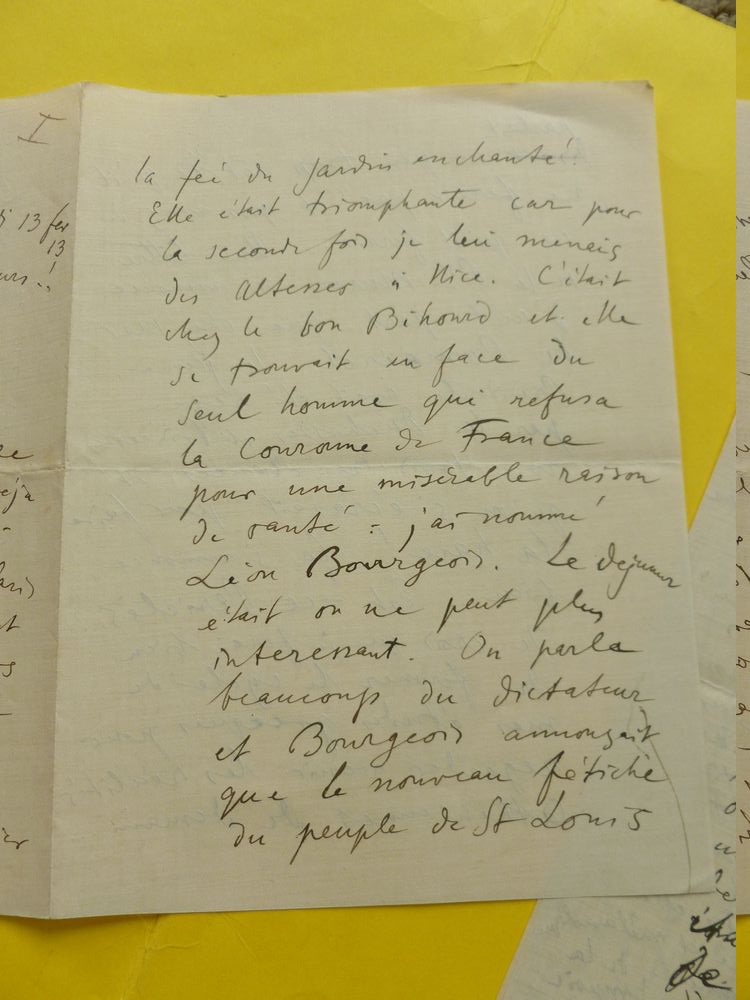 I
13 fev
13
la feé du Jardin enchanté!
Elle était triomphante car pour
la seconde fois je lui menais
des Altesses à Nice. C'était
chez le bon Bihourd et elle
se trouvait en face du
seul homme qui refusa
la Couronne de France
pour une misérable raison
de santé : j'ai nommé
Léon Bourgeois. Le déjeuner
était on ne peut plus
interessant. On parla
beaucoup du dictateur
et Bourgeois annonçait
que le nouveau fétiche
du peuple de St Louis